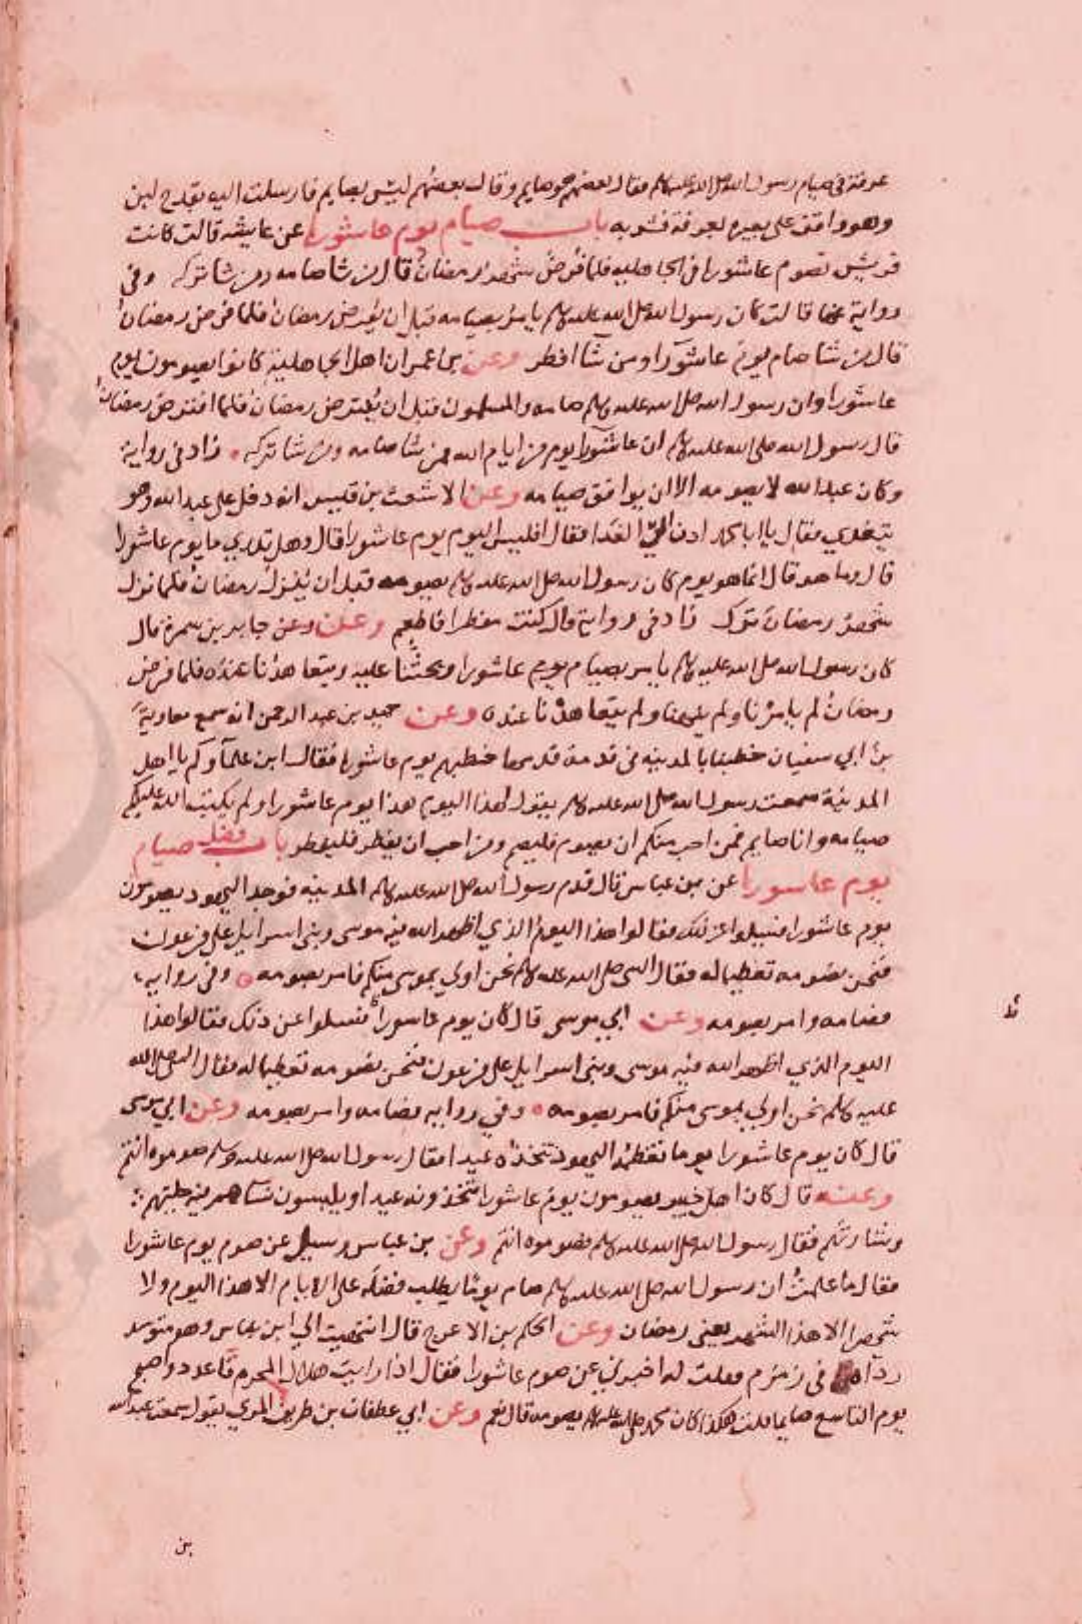 عرفة في صيام رسول الله صلى الله عليه وسلم فقال بعضهم هو صايم وقال بعضهم ليس بصايم فارسلت اليه بقدح لبن
وهو واقف على بعيره بعرفة فشربه باب صيام يوم عاشورا عن عايشه قالت كانت
قريش تصوم عاشورا في الجاهلية فلما فرض شهر رمضان قال من شا صامه ومن شا تركه وفي
رواية عنها قالت كان رسول الله صلى الله عليه وسلم يامر بصيامه قبل ان يفرض رمضان فلما فرض رمضان
قال من شا صام يوم عاشورا ومن شآ افطر وعن بن عمر ان اهل الجاهلية كانوا يصومون يوم
عاشورا وان رسول الله صلى الله عليه وسلم صامه والمسلمون قبل ان يفترض رمضان فلما افترض رمضان
قال رسول الله صلى الله عليه وسلم ان عاشورآ يوم من ايام الله فمن شا صامه ومن شا تركه زاد في رواية
وكان عبد الله لا يصومه الا ان يوافق صيامه وعن الاشعث بن قيس انه دخل على عبد الله وهو
يتغدي فقال يا ابا محمد ادن الي الغدا فقال افليس اليوم يوم عاشورا قال وهل تدري ما يوم عاشورا
قال وما هو قال انما هو يوم كان رسول الله صلى الله عليه وسلم يصومه قبل ان ينزل رمضان فلما نزل
شهر رمضان ترك زاد في رواية قال كنت مفطرا فاطعم وعن وعن جابر بن سمرة قال
كان رسول الله صلى الله عليه وسلم يامر بصيام يوم عاشورا ويحثنا عليه ويتعاهدنا عنده فلما فرض
رمضان لم يامرنا ولم ينهنا ولم يتعاهدنا عنده وعن حميد بن عبد الرحمن انه سمع معاوية
بن ابي سفيان خطيبا بالمدينة في قدمة قدمها خطبهم يوم عاشورا فقال اين علمآوكم يا اهل
المدينة سمعت رسول الله صلى الله عليه وسلم يقول لهذا اليوم هذا يوم عاشورا ولم يكتب الله عليكم
صيامه وانا صايم فمن احب منكم ان يصوم فليصم ومن احب ان يفطر فليفطر باب فضل صيام
يوم عاسورا عن بن عباس قال قدم رسول الله صلى الله عليه وسلم المدينه فوجد اليهود يصومون
يوم عاشورا فسيلوا عن ذلك فقالوا هذا اليوم الذي اظهر الله فيه موسى وبني اسرايل على فرعون
فنحن نصومه تعظيما له فقال النبي صلى الله عليه وسلم نحن اولي بموسى منكم فامر بصومه وفي رواية
فصامه وامر بصومه وعن ابي موسى قال كان يوم عاسورا فسيلوا عن ذلك فقالوا هذا
اليوم الذي اظهر الله فيه موسى وبني اسرايل على فرعون فنحن نصومه تعظيما له فقال النبي صلى الله
عليه وسلم نحن اولي بموسى منكم فامر بصومه وفي رواية فصامه وامر بصومه وعن ابي موسى
قال كان يوم عاشورا يوما تعظمه اليهود تتخذه عيدا فقال رسول الله صلى الله عليه وسلم صوموه انتم
وعنه قال كان اهل خيبر يصومون يوم عاشورا يتخذونه عيدا ويلبسون نسآهم فيه حليهم
وشارتهم فقال رسول الله صلى الله عليه وسلم فصوموه انتم وعن بن عباس وسيل عن صوم يوم عاشورا
فقال ما علمت ان رسول الله صلى الله عليه وسلم صام يوما يطلب فضله على الايام الا هذا اليوم ولا
شهرا الا هذا الشهر يعني رمضان وعن الحكم بن الاعرج قال انتهيت الي ابن عباس وهو متوسد
ردآه في زمزم فقلت له اخبرني عن صوم عاشورا فقال اذا رايت هلال المحرم فاعدد واصبح
يوم التاسع صايما قلت هكذا كان محمد صلى الله عليه وسلم يصومه قال نعم وعن ابي غطفان بن طريف المري يقول سمعت عبد الله
بن